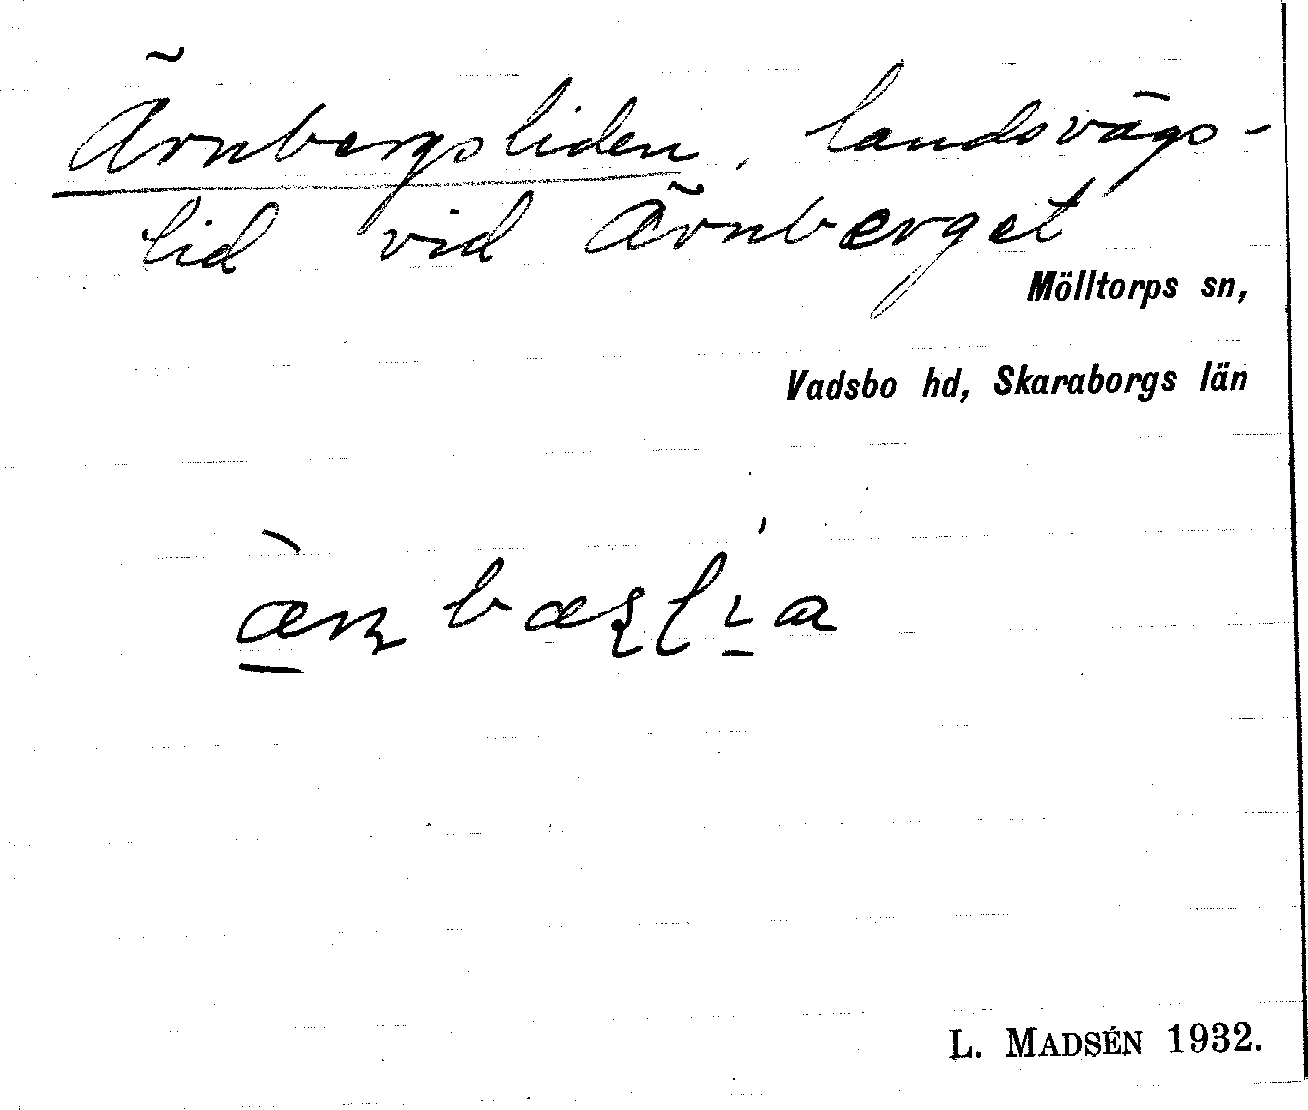 Ärnbergsliden, landsvägs-
lid vid Ärnberget
Mölltorps sn,
Vadsbo hd, Skaraborgs län
L. MADSÉN 1932.